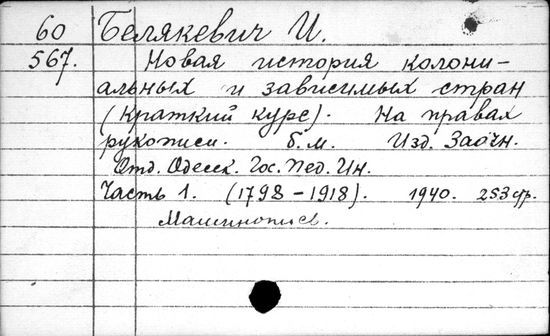 60 Белякевич И.
567. Новая история колони-
альных и зависимых стран
(краткий курс). На правах
рукописи. б.м. Изд. Заочн.
Отд. Одесск. Гос. Пед. Ин.
Часть 1. (1798-1918). 1940. 253 стр.
Машинопись.